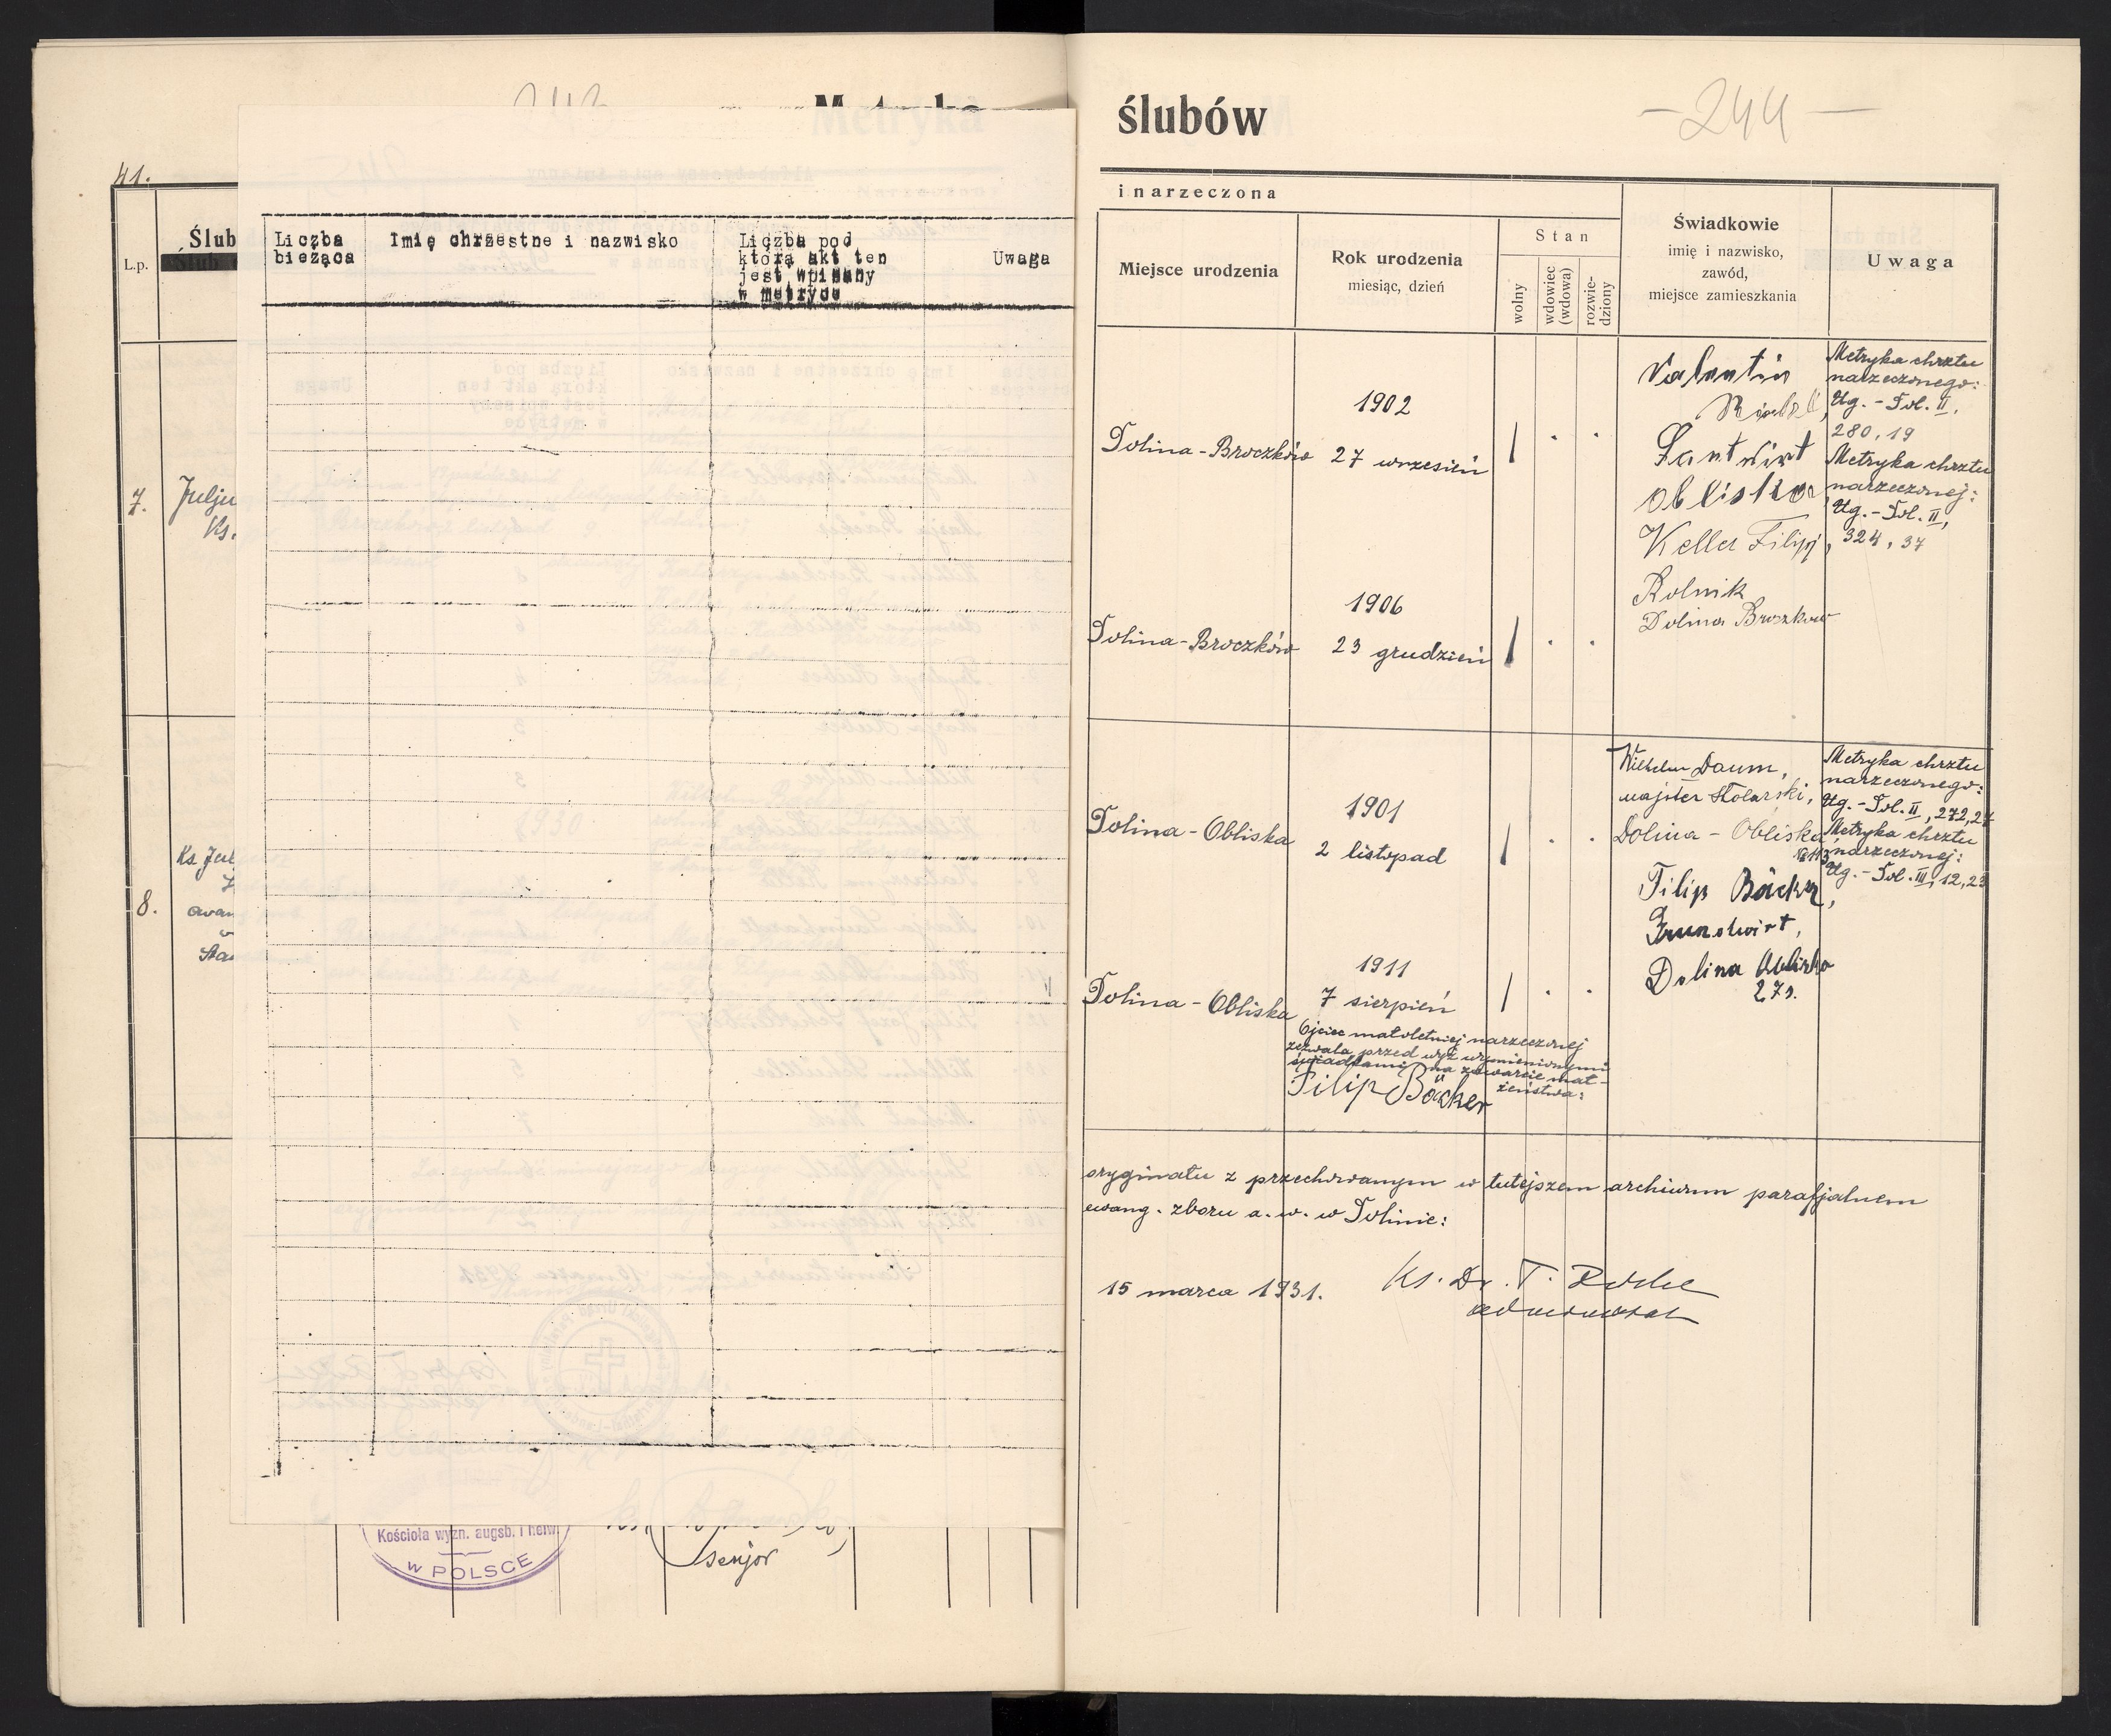 Metryka
41.
L.p.
Ślub
7.
Julju
Ks.
8.
Ks. Jul
Liczba bieżąca
Imię chrzestne i nazwisko
Liczba pod
którą akt ten
jest wpisany
w metryce
Uwaga
Kościoła wyzn. augsb. i helw.
w POLSCE
senjor
ślubów
-244-
i narzeczona
Miejsce urodzenia
Rok urodzenia
miesiąc, dzień
Stan
wolny
wdowiec
(wdowa)
rozwie-
dziony
Świadkowie
imię i nazwisko,
zawód,
miejsce zamieszkania
Uwaga
Dolina-Broczków
1902
27 wrzesień
Valentin
Landwirt
Obliska
Keller Filip,
Rolnik
Dolina Broczkow
Metryka chrztu
narzeczonego:
Ug.-Dol. II,
280, 19
Metryka chrztu
narzeczonej:
Ug.-Dol. II,
324, 37
Dolina-Broczków
1906
23 grudzień
Dolina-Obliska
1901
2 listopad
Wilhelm Daum,
majster stolarski,
Dolina - Obliska
№ 113
Filip Bäcker,
Grundwirt,
Dolina Obliska
273.
Metryka chrztu
narzeczonego:
Ug.-Dol. II, 272, 27
Metryka chrztu
narzeczonej:
Ug.-Dol. III, 12, 23
Dolina-Obliska
1911
7 sierpień
Ojciec małoletniej narzeczonej
zezwala przed wyż wymienionymi
świadkami na zawarcie mał-
żeństwa:
Filip Bäcker
oryginału z przechowanym w tutejszem archiwum parafjalnem
ewang. zboru a. w. w Dolinie:
15 marca 1931.
Ks. Dr. T.